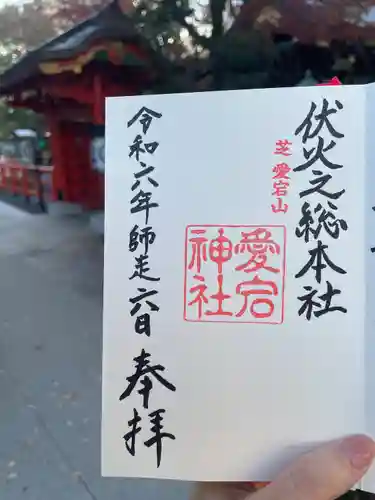 伏火之総本社
芝愛宕山
愛宕
神社
令和六年師走六日
奉拝